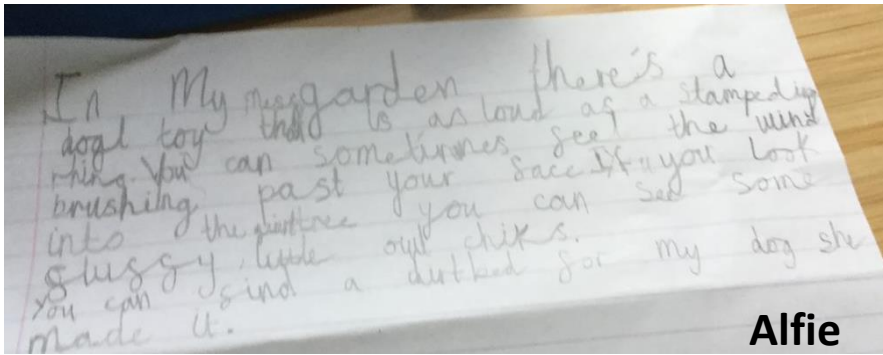 In My messy garden there's a
dog toy that is as loud as a stampeding
rhino. You can sometimes feel the wind
brushing past your face If you look
into the tree you can see some
fluffy little owl chiks.
You can find a for my dog she
made it.
Alfie